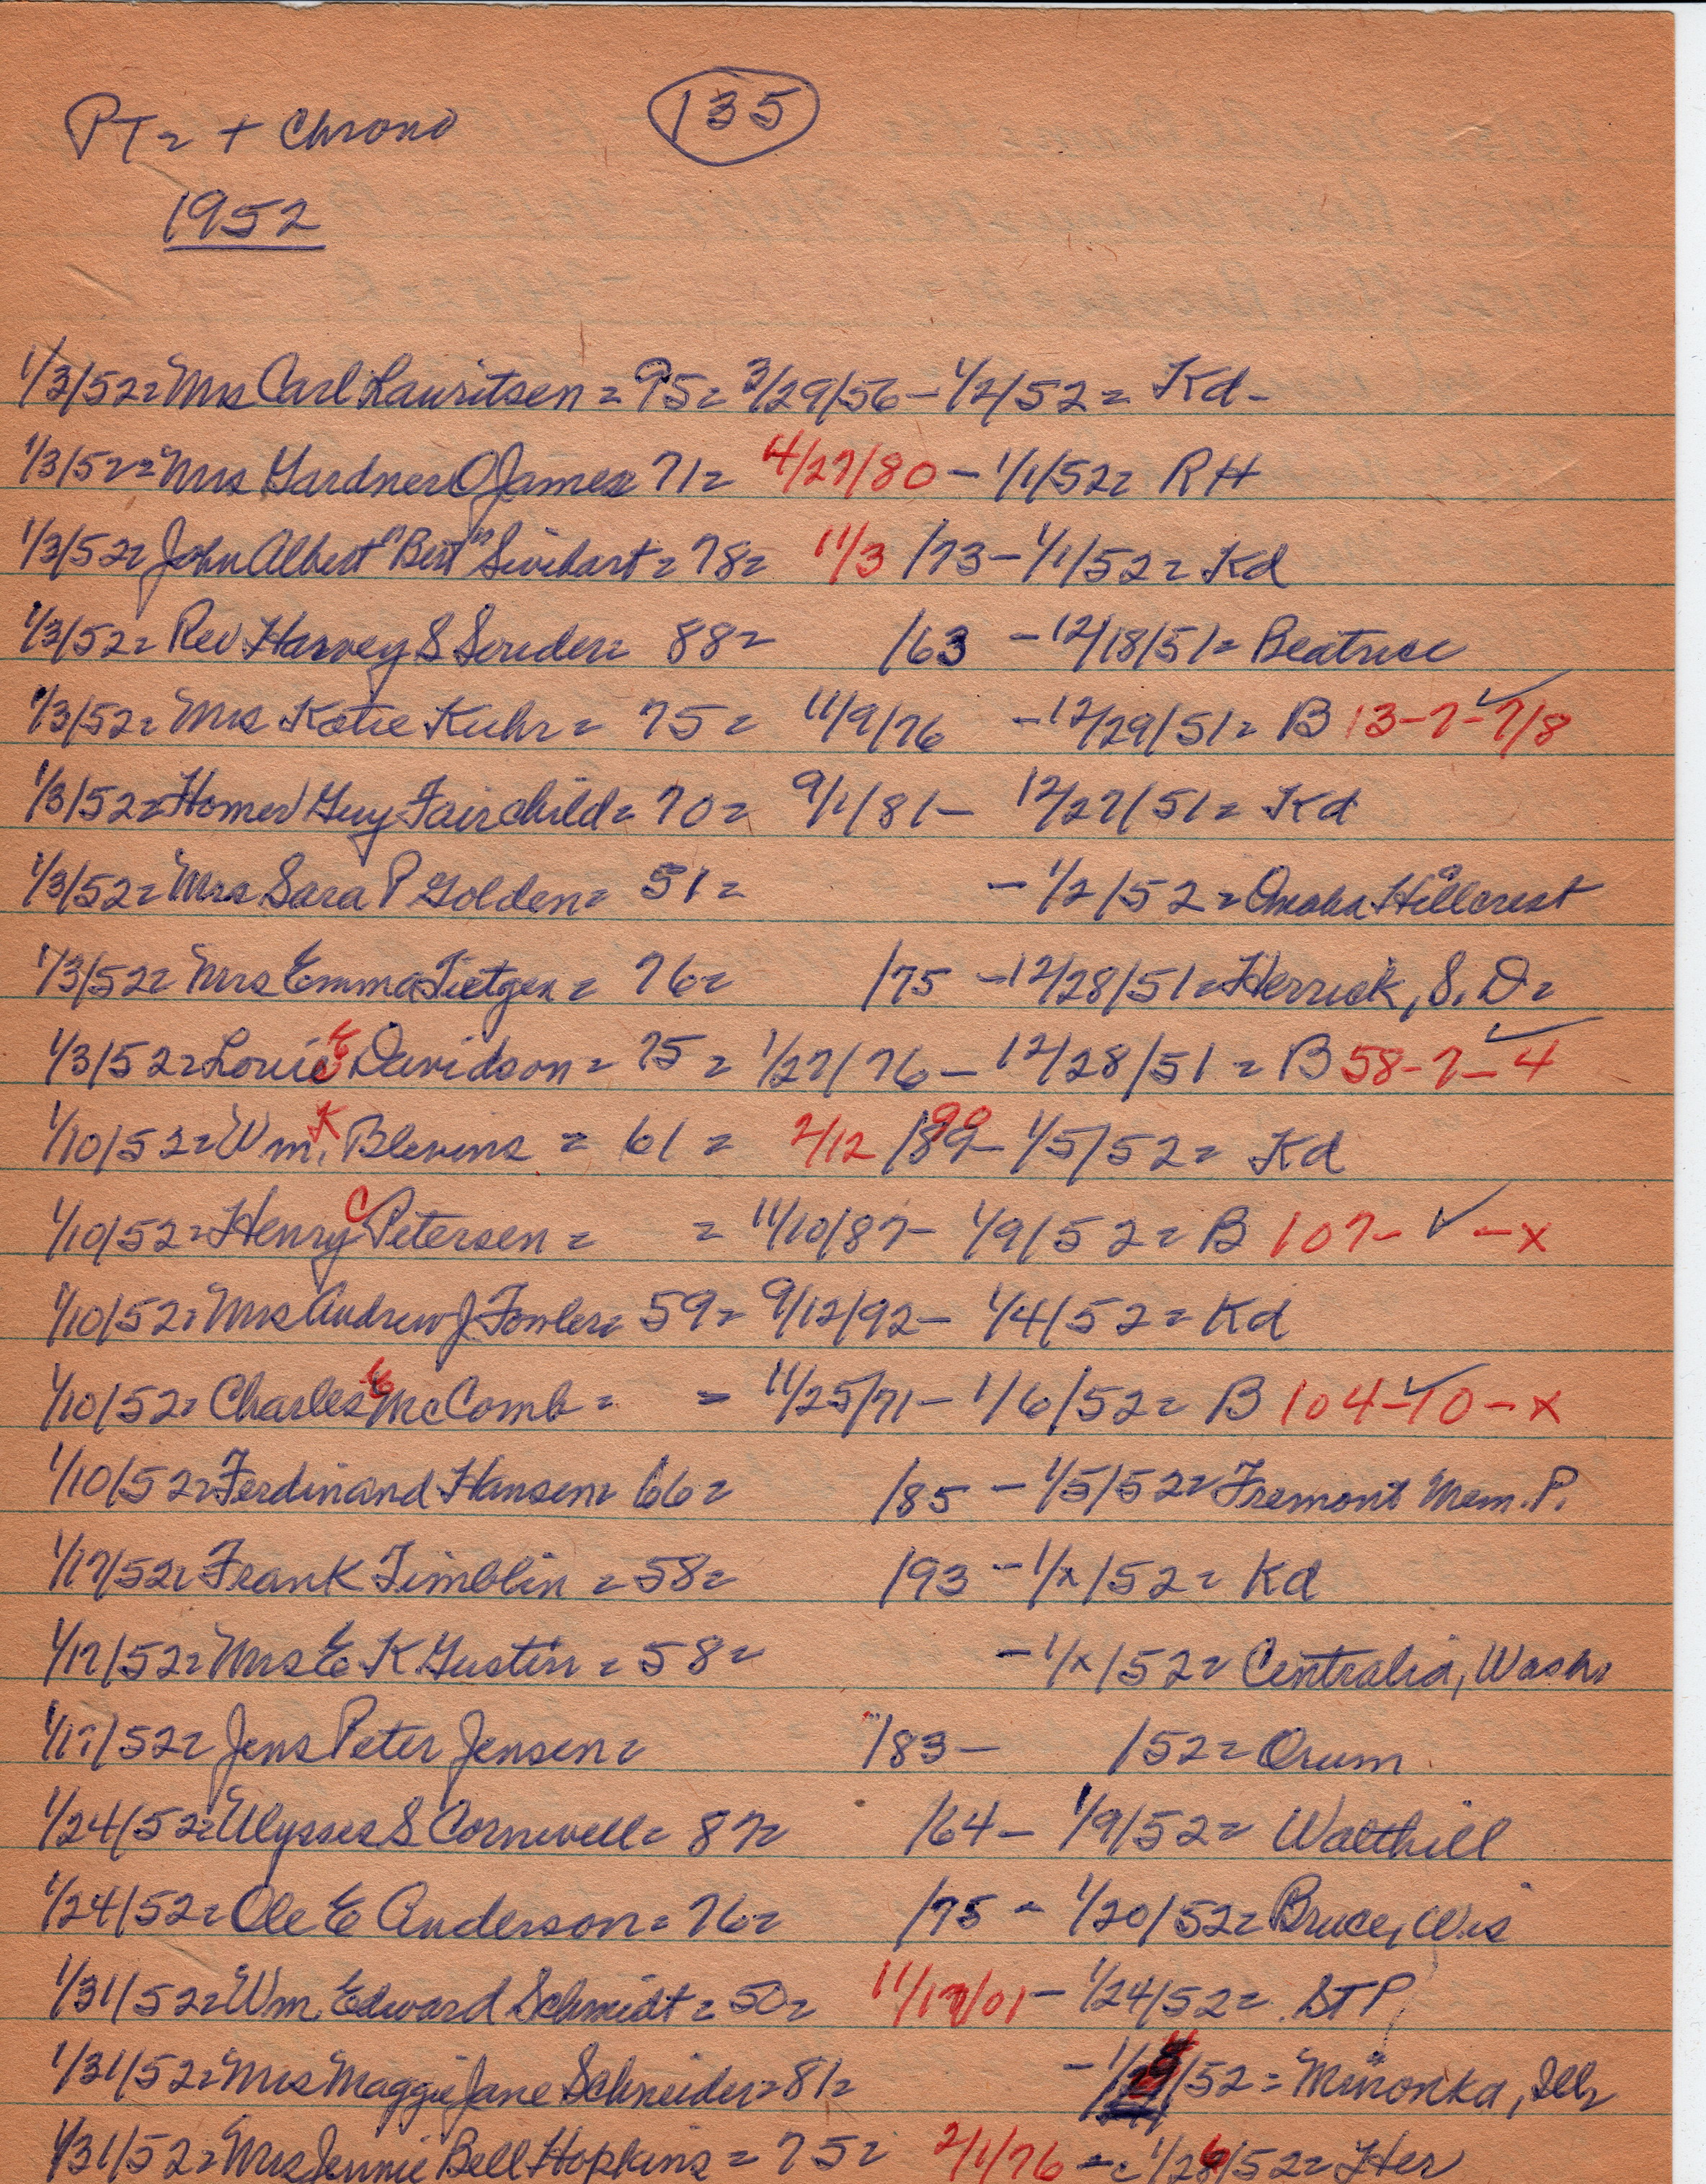 PT = + Chrono 135
1952
1/3/52 = Mrs Carl Lauritsen = 95 = 3/29/56 - 1/2/52 = Kd -
1/3/52 = Mrs Gardner O James 71 = 4/27/80 - 1/1/52 = RH
1/3/52 = John Albert "Bert" Sivihart = 78 = 11/3 /73 - 1/1/52 = Kd
1/3/52 = Rev Harvey S 88 = /63 - 12/18/51 = Beatrice
1/3/52 = Mrs Katie Kuhr = 75 = 11/9/76 - 12/29/51 = B 13-7-7/8 ✓
1/3/52 = Homer Guy Fairchild = 70 = 9/1/81 - 12/27/51 = Kd
1/3/52 = Mrs Sara P Golden = 51 = - 1/2/52 = Omaha Hillcrest
1/3/52 = Mrs Emma Tietgen = 76 = /75 - 12/28/51 = Herrick, S. D =
1/3/52 = Louie E Davidson = 75 = 1/27/76 - 12/28/51 = B 58-7-4 ✓
1/10/52 = Wm. K Blevins = 61 = 2/12 /90 - 1/5/52 = Kd
1/10/52 = Henry C Petersen = = 11/10/87 - 1/9/52 = B 107- ✓ -x
1/10/52 = Mrs Andrew J Fowler = 59 = 9/12/92 - 1/4/52 = Kd
1/10/52 = Charles E McComb = = 11/25/71 - 1/6/52 = B 104-10-x ✓
1/10/52 = Ferdinand Hansen = 66 = /85 - 1/5/52 = Fremont Mem. P.
1/17/52 = Frank Timblin = 58 = /93 - 1/x/52 = Kd
1/17/52 = Mrs E K Gustin = 58 = - 1/x/52 = Centralia, Wash.
1/17/52 = Jens Peter Jensen = /83 - /52 = Orum
1/24/52 = Ulysses S Cornwell = 87 = /64 - 1/9/52 = Walthill
1/24/52 = Ole E Anderson = 76 = /75 - 1/20/52 = Bruce, Wis
1/31/52 = Wm Edward Schmidt = 50 = 11/17/01 - 1/24/52 = STP
1/31/52 = Mrs Maggie Jane Schneider = 81 = - 1/ /52 = Minonka, Ill
1/31/52 = Mrs Jennie Bell Hopkins = 75 = 2/1/76 - 1/26/52 = Her